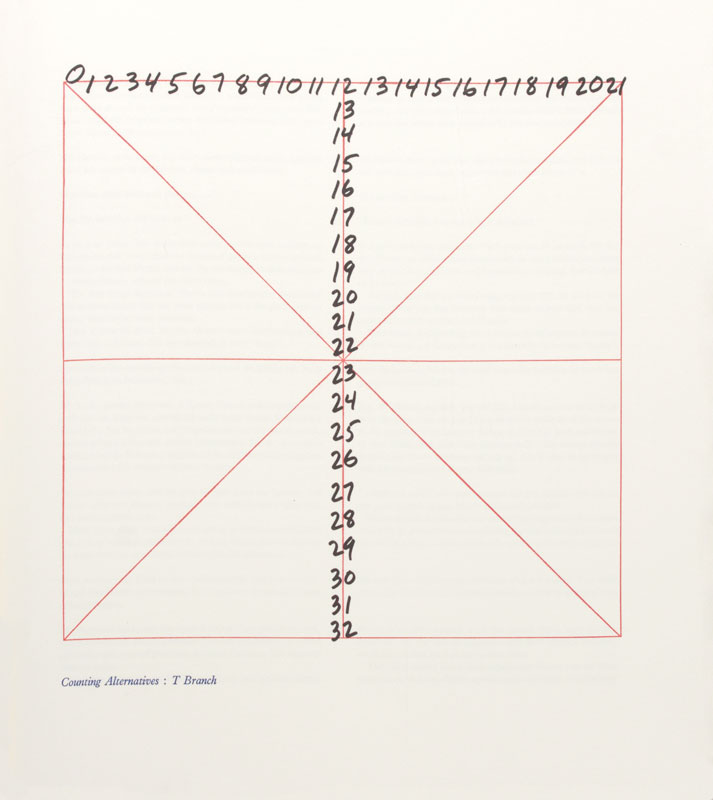 0 1 2 3 4 5 6 7 8 9 10 11 12 13 14 15 16 17 18 19 20 21
13
14
15
16
17
18
19
20
21
22
23
24
25
26
27
28
29
30
31
32
Counting Alternatives : T Branch